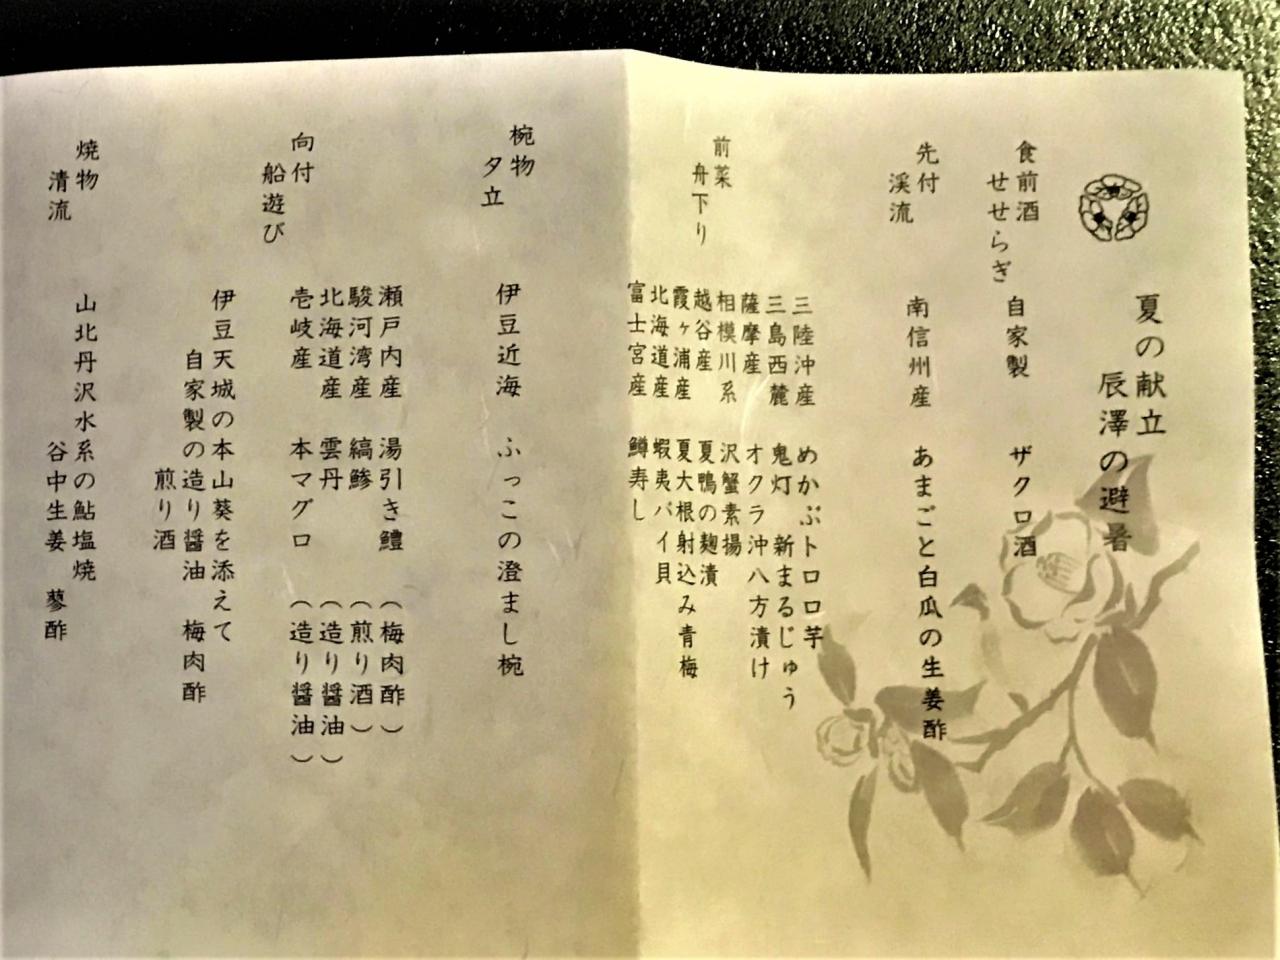 夏の献立
辰澤の避暑
食前酒
せせらぎ
自家製 ザクロ酒
先付
渓流
南信州産 あまごと白瓜の生姜酢
前菜
舟下り
三陸沖産 めかぶトロロ芋
三島西麓 鬼灯 新まるじゅう
薩摩産 オクラ沖八方漬け
相模川系 沢蟹素揚
越谷産 夏鴨の麹漬
霞ヶ浦産 夏大根射込み青梅
北海道産 蝦夷バイ貝
富士宮産 鱒寿し
椀物
夕立
伊豆近海 ふっこの澄まし椀
向付
船遊び
瀬戸内産 湯引き鱧 （梅肉酢）
駿河湾産 縞鯵 （煎り酒）
北海道産 雲丹 （造り醤油）
壱岐産 本マグロ （造り醤油）
伊豆天城の本山葵を添えて
自家製の造り醤油 梅肉酢
煎り酒
焼物
清流
山北丹沢水系の鮎塩焼
谷中生姜 蓼酢